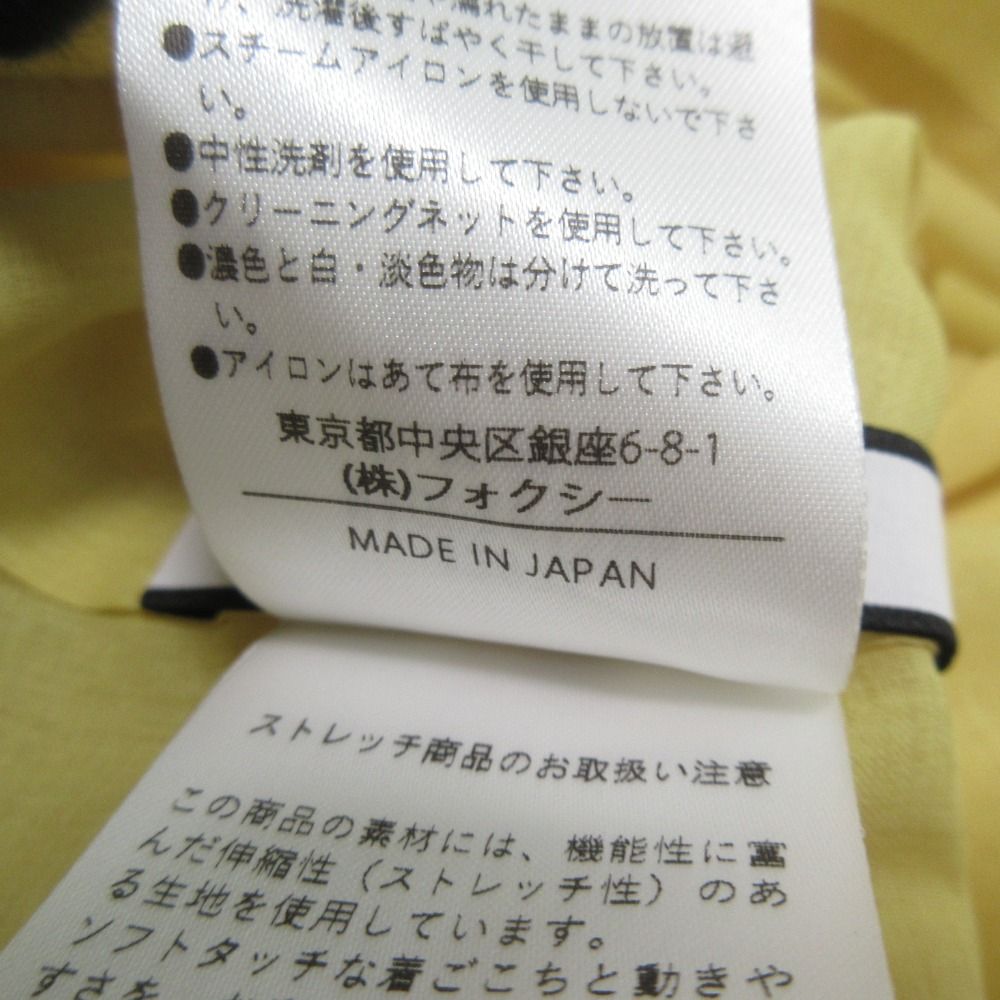 濡れたままの放置は避
け、洗濯後すばやく干して下さい。
●スチームアイロンを使用しないで下さ
い。
●中性洗剤を使用して下さい。
●クリーニングネットを使用して下さい。
●濃色と白・淡色物は分けて洗って下さ
い。
●アイロンはあて布を使用して下さい。
東京都中央区銀座6-8-1
(株)フォクシー
MADE IN JAPAN
ストレッチ商品のお取扱い注意
この商品の素材には、機能性に富
んだ伸縮性（ストレッチ性）のあ
る生地を使用しています。
ソフトタッチな着ごこちと動きや
すさを